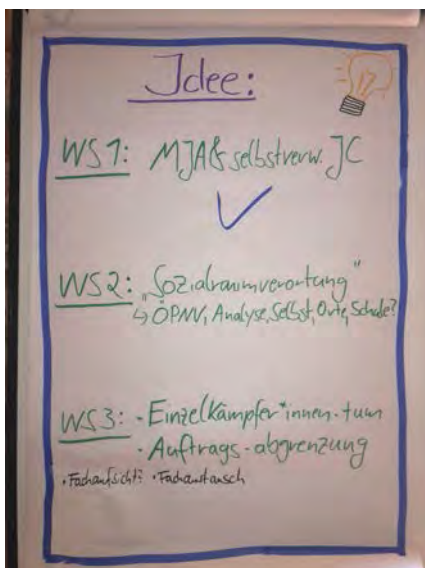 Idee:
WS1: MJA & selbstverw. JC
WS2: „Sozialraumverortung"
↳ ÖPNV, Analyse, Selbst, Orte, Schule?
WS3: - Einzelkämpfer*innen-tum
- Auftrags-abgrenzung
• Fachaufsicht? • Fachaustausch